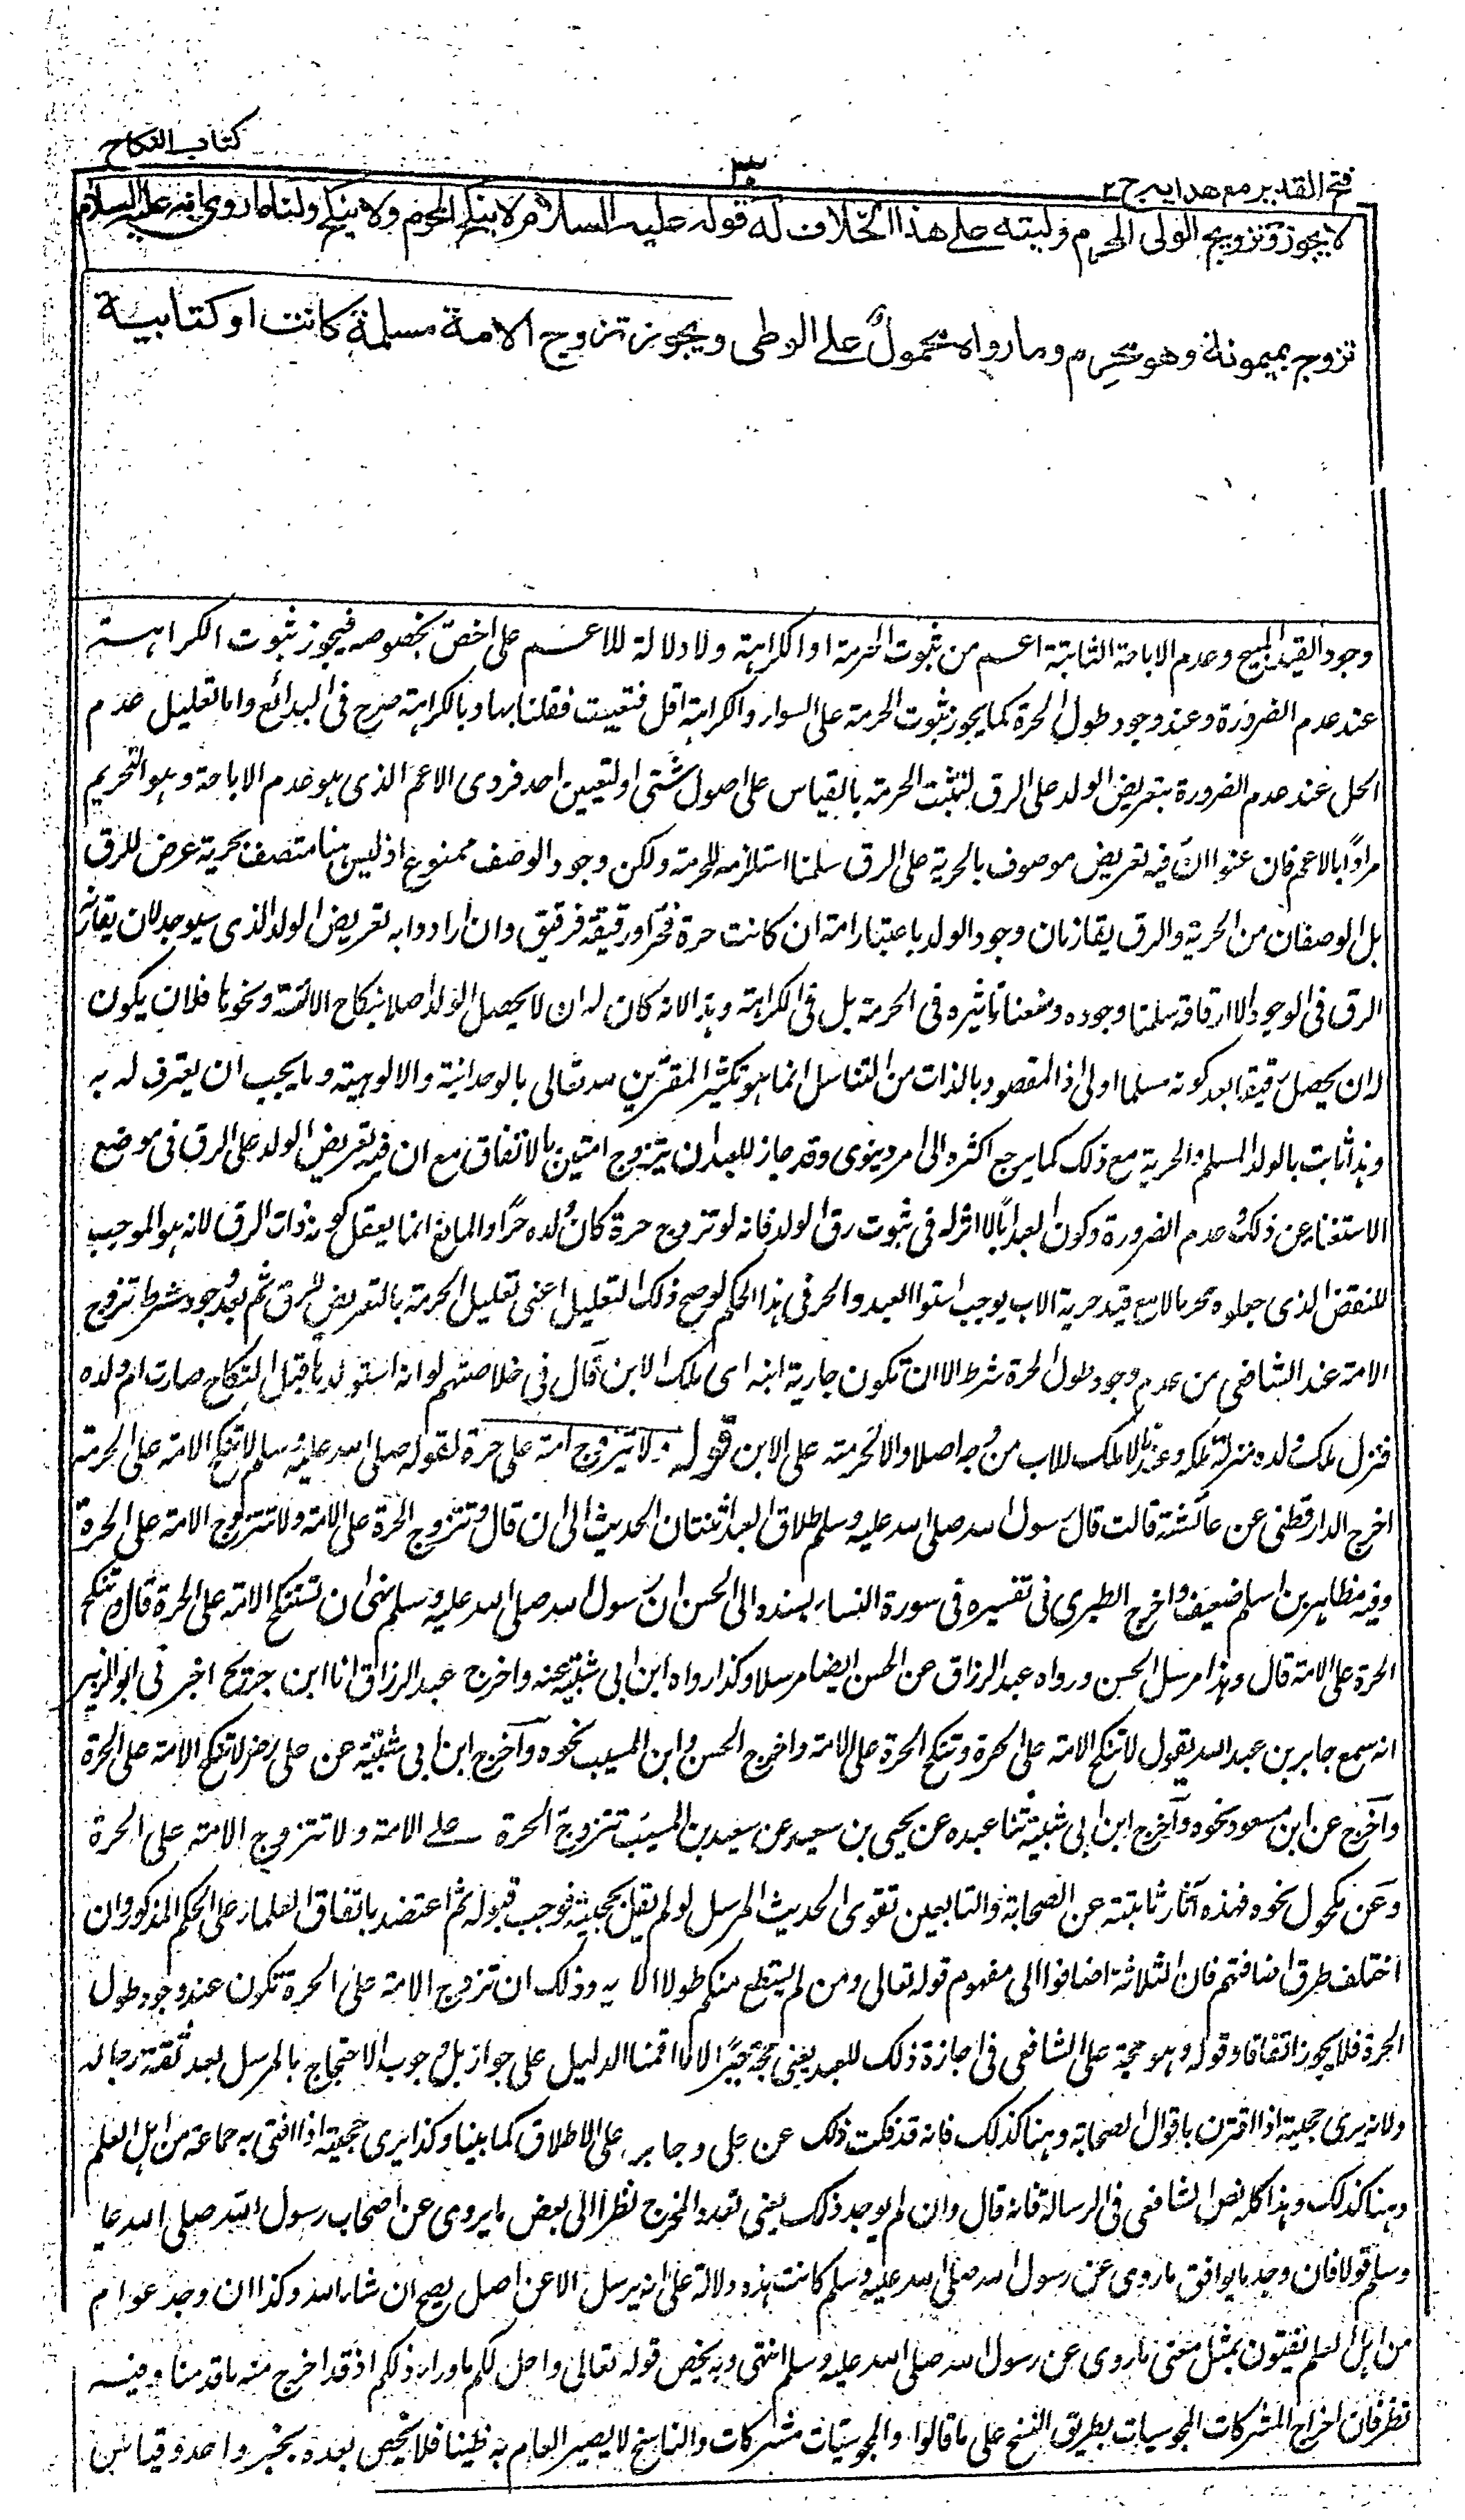 كتاب النكاح
٣
فتح القدير مع هدايه ج ٢
لا يجوز وتزويج الولى المحرم وليته على هذا الخلاف له قوله عليه السلام لا ينكح المحرم ولا ينكح ولنا ما روى انه عليه السلام
تزوج بميمونة وهو محرم وما رواه محمول على الوطى ويجوز تزوج الامة مسلمة كانت او كتابية
وجود القيد المبيح وعدم الاباحة الثابتة اعم من ثبوت الحرمة او الكراهة ولا دلالة للاعم على اخص بخصوصه فيجوز ثبوت الكراهة
عند عدم الضرورة وعند وجود طول الحرة كما يجوز ثبوت الحرمة على السواء والكراهة اقل فتعينت فقلنا بها وبالكراهة صرح فى البدائع واما تعليل عدم
الحل عند عدم الضرورة بتعريض الولد على الرق لتثبت الحرمة بالقياس على اصول شتى او لتعيين احد فردى الاعم الذى هو عدم الاباحة وهو التحريم
مرادًا بالاعم فان عنوا ان فيه تعريض موصوف بالحرية على الرق سلمنا استلزامه للحرمة ولكن وجود الوصف ممنوع اذ ليس هنا متصف بحرية عرض للرق
بل الوصفان من الحرية والرق يقارنان وجود الولد باعتبار امه ان كانت حرة فحر او رقيقة فرقيق وان ارادوا به تعريض الولد الذى سيوجد لان يقارنه
الرق فى الوجود لا ارقاقه سلمنا وجوده ومنعنا تاثيره فى الحرمة بل فى الكراهة وهذا لانه كان له ان لا يحصل الولد اصلا بنكاح الآئسة ونحوها فلان يكون
له ان يحصل رقيقا بعد كونه مسلما اولى اذ المقصود بالذات من التناسل انما هو تكثير المقرين لله تعالى بالوحدانية والالوهية وما يجب ان يعترف له به
وهذا ثابت بالولد المسلم والحرية مع ذلك كمال يرجع اكثره الى امر دنيوى وقد جاز للعبد ان يتزوج امتين بالاتفاق مع ان فيه تعريض الولد على الرق فى موضع
الاستغناء عن ذلك وعدم الضرورة وكون العبد ابًا لا اثر له فى ثبوت رق الولد فانه لو تزوج حرة كان ولده حرًا والمانع انما يعقل كونه ذات الرق لانه هو الموجب
للنقص الذى جعلوه محرما لا مع قيد حرية الاب يوجب استواء العبد والحر فى هذا الحكم لو صح ذلك التعليل اعنى تعليل الحرمة بالتعريض للرق ثم بعد وجود شرط تزوج
الامة عند الشافعى من عدم وجود طول الحرة شرط الا ان تكون جارية ابنه اى ملك الابن قال فى خلاصتهم لو انه استولدها قبل النكاح صارت ام ولده
فنزل ملك ولده منزلة ملكه وعندنا لا ملك للاب من وجه اصلا والا لحرمت على الابن قوله ولا يتزوج امة على حرة لقوله صلى الله عليه وسلم لا تنكح الامة على الحرة
اخرج الدارقطنى عن عائشة قالت قال رسول الله صلى الله عليه وسلم طلاق العبد ثنتان الحديث الى ان قال وتتزوج الحرة على الامة ولا تتزوج الامة على الحرة
وفيه مظاهر بن اسلم ضعيف واخرج الطبرى فى تفسيره فى سورة النساء بسنده الى الحسن ان رسول الله صلى الله عليه وسلم نهى ان تستنكح الامة على الحرة قال وتنكح
الحرة على الامة قال وهذا مرسل الحسن ورواه عبد الرزاق عن الحسن ايضا مرسلا وكذا رواه ابن ابى شيبة عنه واخرج عبد الرزاق انا ابن جريج اخبرنى ابو الزبير
انه سمع جابر بن عبد الله يقول لا تنكح الامة على الحرة وتنكح الحرة على الامة واخرج الحسن وابن المسيب نحوه وأخرج ابن ابى شيبة عن على رض لا تنكح الامة على الحرة
وأخرج عن ابن مسعود نحوه وأخرج ابن ابى شيبة ثنا عبده عن يحيى بن سعيد عن سعيد بن المسيب تتزوج الحرة على الامة ولا تتزوج الامة على الحرة
وعن مكحول نحوه فهذه آثار ثابتة عن الصحابة والتابعين تقوى الحديث المرسل لو لم يقل بحجيته فوجب قبوله ثم اعتضد باتفاق العلماء على الحكم المذكور وان
اختلف طرق اضافتهم فان الثلاثة اضافوا الى مفهوم قوله تعالى ومن لم يستطع منكم طولا الآية وذلك ان تزوج الامة على الحرة تكون عند وجود طول
الحرة فلا يجوز اتفاقا وقوله وهو حجة على الشافعى فى اجازة ذلك للعبد يعنى حجة جبرًا لانا اقمنا الدليل على جواز بل وجوب الاحتجاج بالمرسل بعد ثقة رجاله
ولانه يرى حجية اذا اقترن باقوال الصحابة وهنا كذلك فانه قد ذكرت ذلك عن على وجابر على الاطلاق كما بينا وكذا يرى حجيته اذا افتى به جماعة من اهل العلم
وهنا كذلك وهذا كله نص الشافعى فى الرسالة فانه قال وان لم يوجد ذلك يعنى تعدد المخرج نظر الى بعض ما يروى عن اصحاب رسول الله صلى الله عليه
وسلم قولا فان وجد ما يوافق ما روى عن رسول الله صلى الله عليه وسلم كانت هذه دلالة على انه لم يرسل الا عن اصل يصح ان شاء الله وكذا ان وجد عوام
من اهل العلم يفتون بمثل معنى ما روى عن رسول الله صلى الله عليه وسلم انتهى وبه يخص قوله تعالى واحل لكم ما وراء ذلكم اذ قد اخرج منه ما قدمنا وفيه
نظر فان اخراج المشركات المجوسيات بطريق النسخ على ما قالوا والمجوسيات مشركات والناسخ لا يصير العام به ظنيا فلا يخص بعده بخبر واحد وقياس